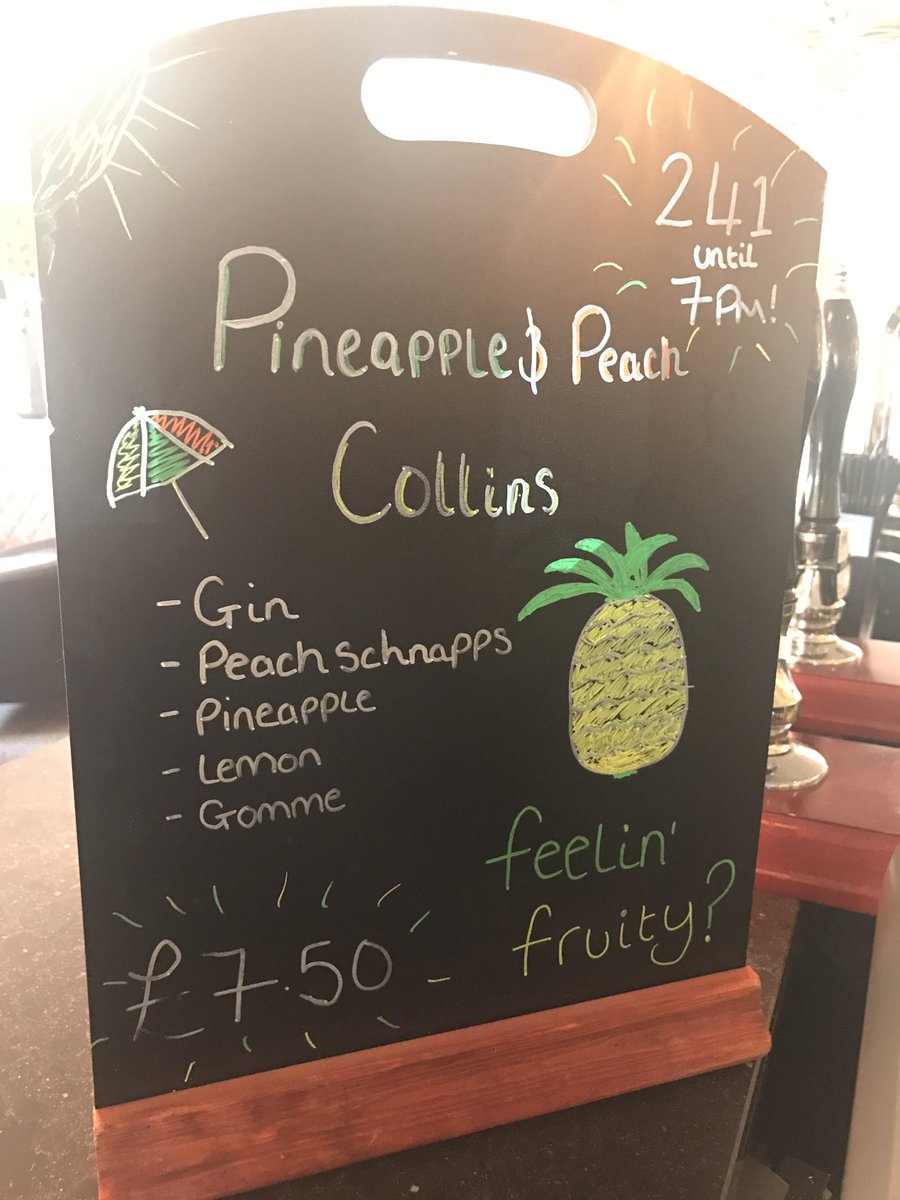 241
until
7pm!
Pineapple & Peach
Collins
- Gin
- Peach schnapps
- Pineapple
- Lemon
- Gomme
feelin'
fruity?
£7.50